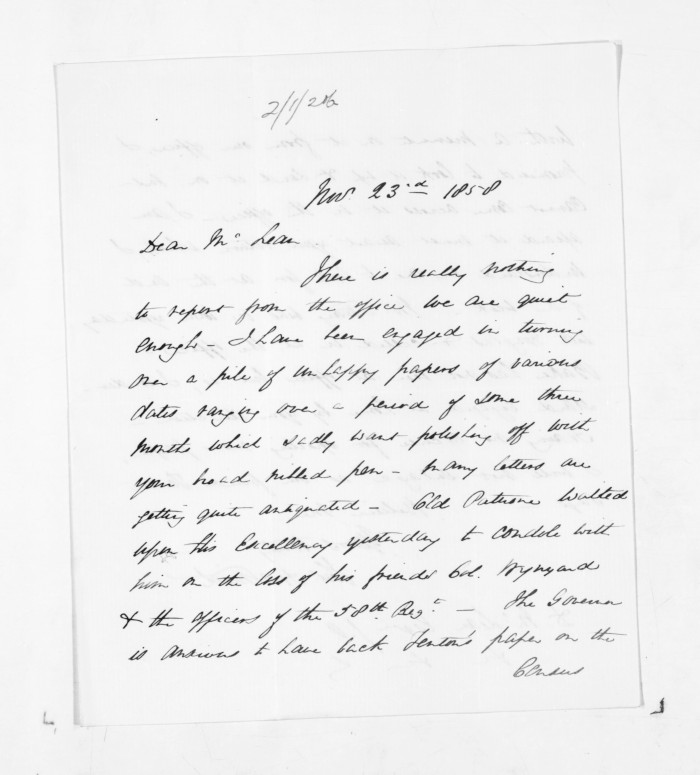 2/1/216
Nov. 23rd 1858
Dear McLean
There is really nothing
to report from the office we are quiet
enough - I have been engaged in turning
over a pile of unhappy papers of various
dates ranging over a period of some three
months which sadly want polishing off with
your broad nibbed pen - many letters are
getting quite antiquated - Old Patuone waited
upon his Excellency yesterday to condole with
him on the loss of his friends Col. Wynyard
& the officers of the 58th Regt - The Governor
is anxious to have back Fenton's paper on the
Census